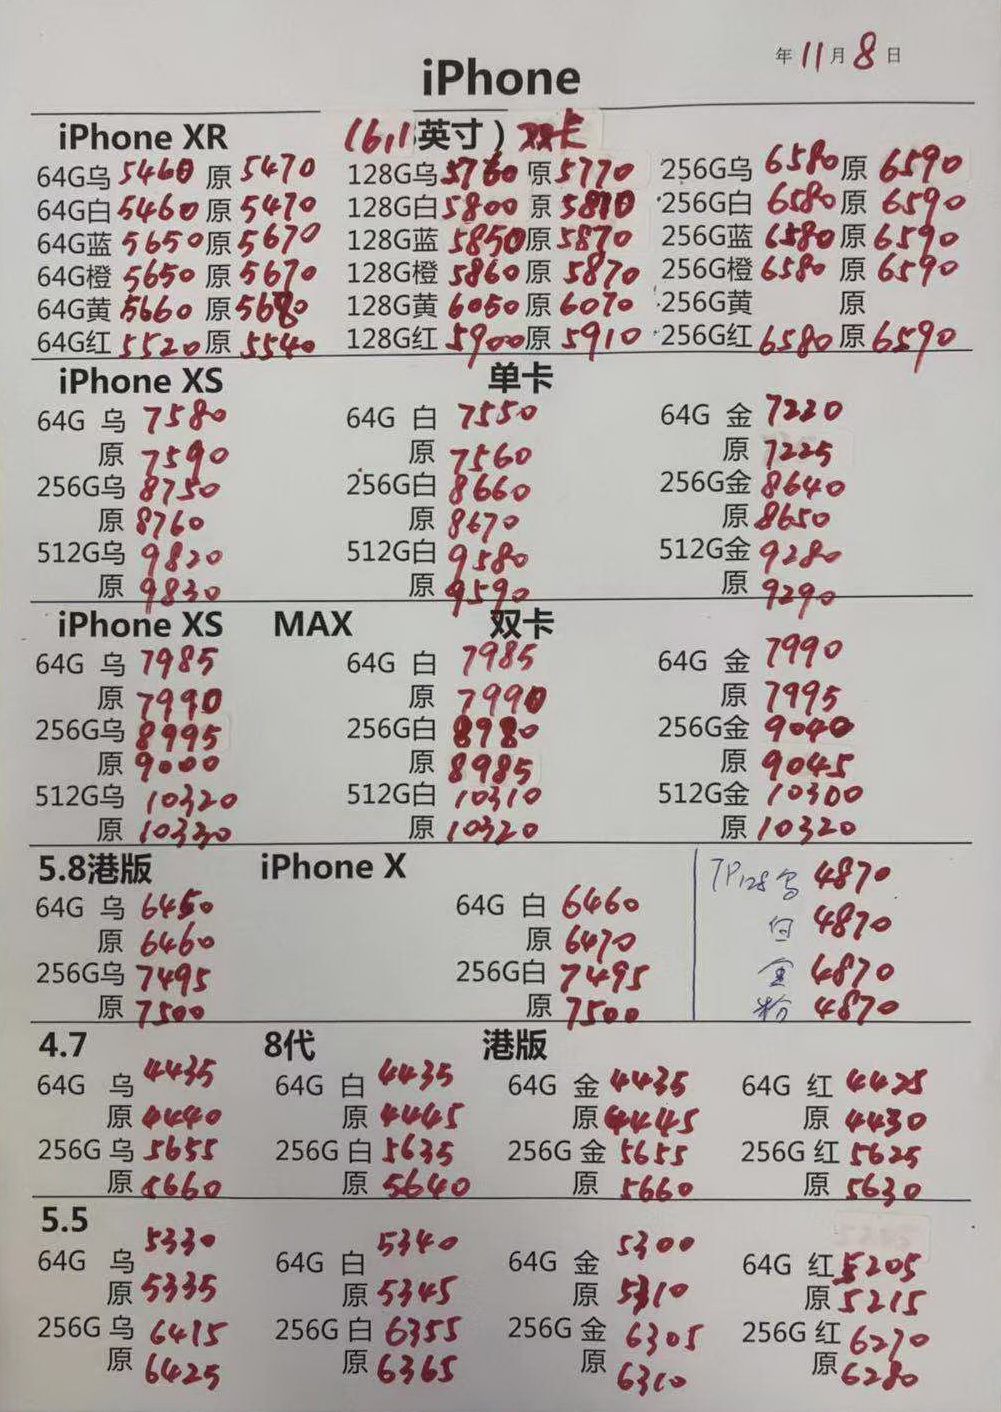 年11月8日
iPhone
iPhone XR (6.1英寸) 双卡
64G乌 5460 原 5470 128G乌 5760 原 5770 256G乌 6580 原 6590
64G白 5460 原 5470 128G白 5800 原 5810 256G白 6580 原 6590
64G蓝 5650 原 5670 128G蓝 5850 原 5870 256G蓝 6580 原 6590
64G橙 5650 原 5670 128G橙 5860 原 5870 256G橙 6580 原 6590
64G黄 5660 原 5680 128G黄 6050 原 6070 256G黄 原
64G红 5520 原 5540 128G红 5900 原 5910 256G红 6580 原 6590
iPhone XS 单卡
64G 乌 7580 64G 白 7550 64G 金 7220
原 7590 原 7560 原 7225
256G乌 8750 256G白 8660 256G金 8640
原 8760 原 8670 原 8650
512G乌 9820 512G白 9580 512G金 9280
原 9830 原 9590 原 9290
iPhone XS MAX 双卡
64G 乌 7985 64G 白 7985 64G 金 7990
原 7990 原 7990 原 7995
256G乌 8995 256G白 8980 256G金 9040
原 9000 原 8985 原 9045
512G乌 10320 512G白 10310 512G金 10300
原 10330 原 10320 原 10320
5.8港版 iPhone X 7P128乌 4870
64G 乌 6450 64G 白 6460 白 4870
原 6460 原 6470
256G乌 7495 256G白 7495 金 4870
原 7500 原 7500 粉 4870
4.7 8代 港版
64G 乌 4435 64G 白 4435 64G 金 4435 64G 红 4425
原 4440 原 4445 原 4445 原 4430
256G 乌 5655 256G 白 5635 256G 金 5655 256G 红 5625
原 5660 原 5640 原 5660 原 5630
5.5
64G 乌 5330 64G 白 5340 64G 金 5300 64G 红 5205
原 5335 原 5345 原 5310 原 5215
256G 乌 6415 256G 白 6355 256G 金 6305 256G 红 6270
原 6425 原 6365 原 6310 原 6280